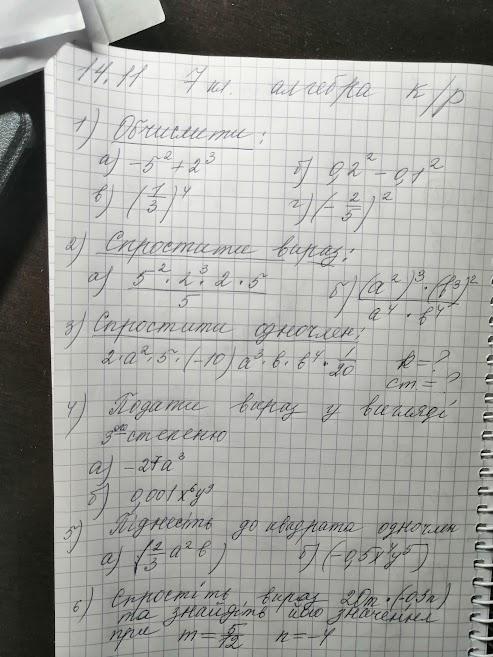 14.11 7 кл. алгебра к/р
1) Обчислити:
а) -5² + 2³ б) 0,2² - 0,1²
в) (1/3)⁴ г) (-2/5)²
2) Спростити вираз:
а) 5² · 2³ · 2 · 5 / 5 б) (a²)³ · (b³)² / a⁴ · b⁴
3) Спростити одночлен:
2 · a² · 5 · (-10) a³ · b · b⁴ · 1/20 k = ?
ст = ?
4) Подати вираз у вигляді
3ого степеню
а) -27a³
б) 0,001x⁶y³
5) Піднесіть до квадрата одночлен
а) (2/3 a² b) б) (-0,5x⁴y⁵)
6) Спростіть вираз 20m · (-0,3n)
та знайдіть його значення
при m = 5/12 n = -4